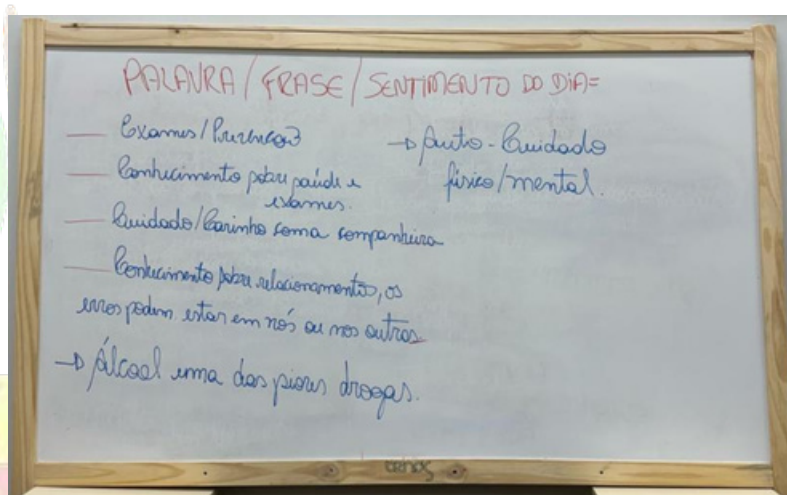 PALAVRA / FRASE / SENTIMENTO DO DIA =
— Exames / Prevenção
— Conhecimento sobre saúde e
exames.
— Cuidado / Carinho com a companheira
— Conhecimento sobre relacionamentos, os
erros podem estar em nós ou nos outros
→ Álcool uma das piores drogas.
→ Auto-Cuidado
físico / mental.